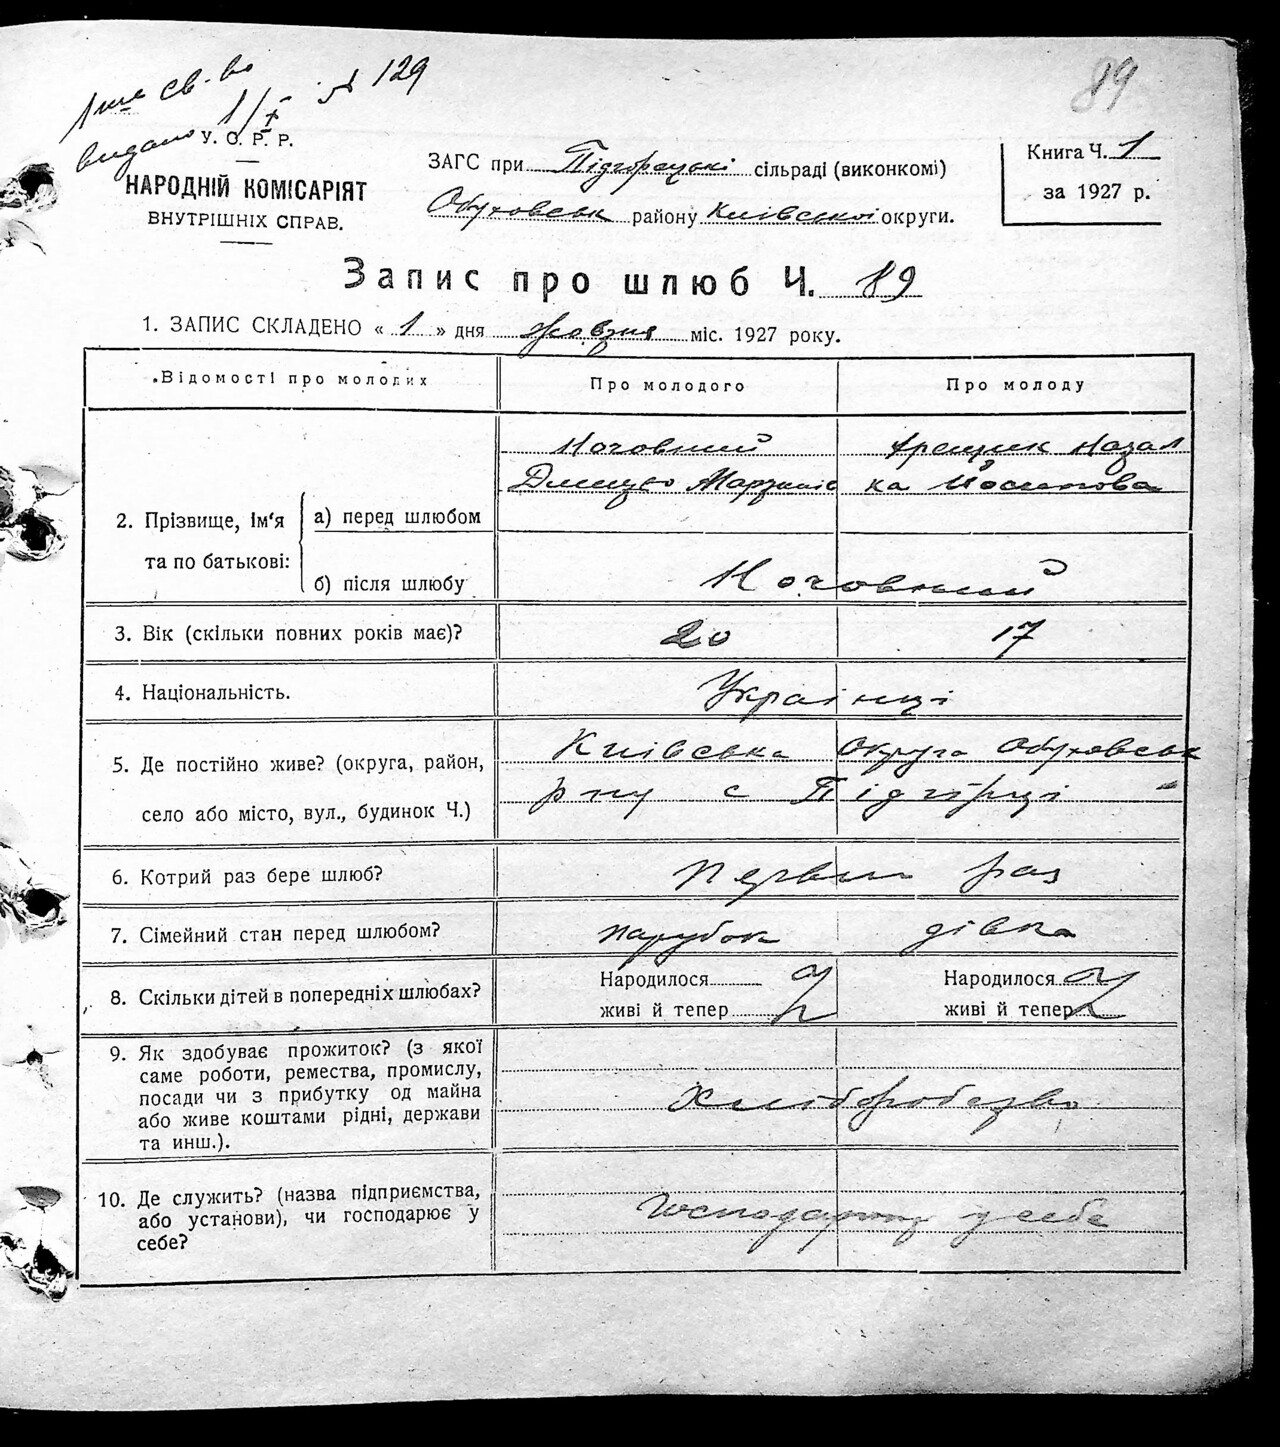 св-во
видано 1/X № 129
89
У. С. Р. Р.
НАРОДНІЙ КОМІСАРІЯТ
ВНУТРІШНІХ СПРАВ.
ЗАГС при Підгорецькі сільраді (виконкомі)
Обуховськ району Київської округи.
Книга Ч. 1
за 1927 р.
Запис про шлюб Ч. 89
1. ЗАПИС СКЛАДЕНО « 1 » дня жовтня міс. 1927 року.
Відомості про молодих
Про молодого
Про молоду
2. Прізвище, ім'я та по батькові:
а) перед шлюбом
Ночовний
Дмитро
ка Йосипова
б) після шлюбу
Ночовний
3. Вік (скільки повних років має)?
20
17
4. Національність.
Українці
5. Де постійно живе? (округа, район,
село або місто, вул., будинок Ч.)
Київська Округа Обуховськ
р ну с Підгірці
6. Котрий раз бере шлюб?
первий раз
7. Сімейний стан перед шлюбом?
парубок
дівка
8. Скільки дітей в попередніх шлюбах?
Народилося
живі й тепер
Народилося
живі й тепер
9. Як здобуває прожиток? (з якої
саме роботи, ремества, промислу,
посади чи з прибутку од майна
або живе коштами рідні, держави
та инш.).
Хліборобство
10. Де служить? (назва підприємства,
або установи), чи господарює у
себе?
Господарюють у себе